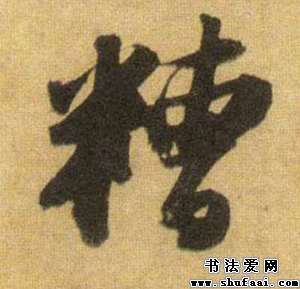 糟
书法爱网
www.shufaai.com